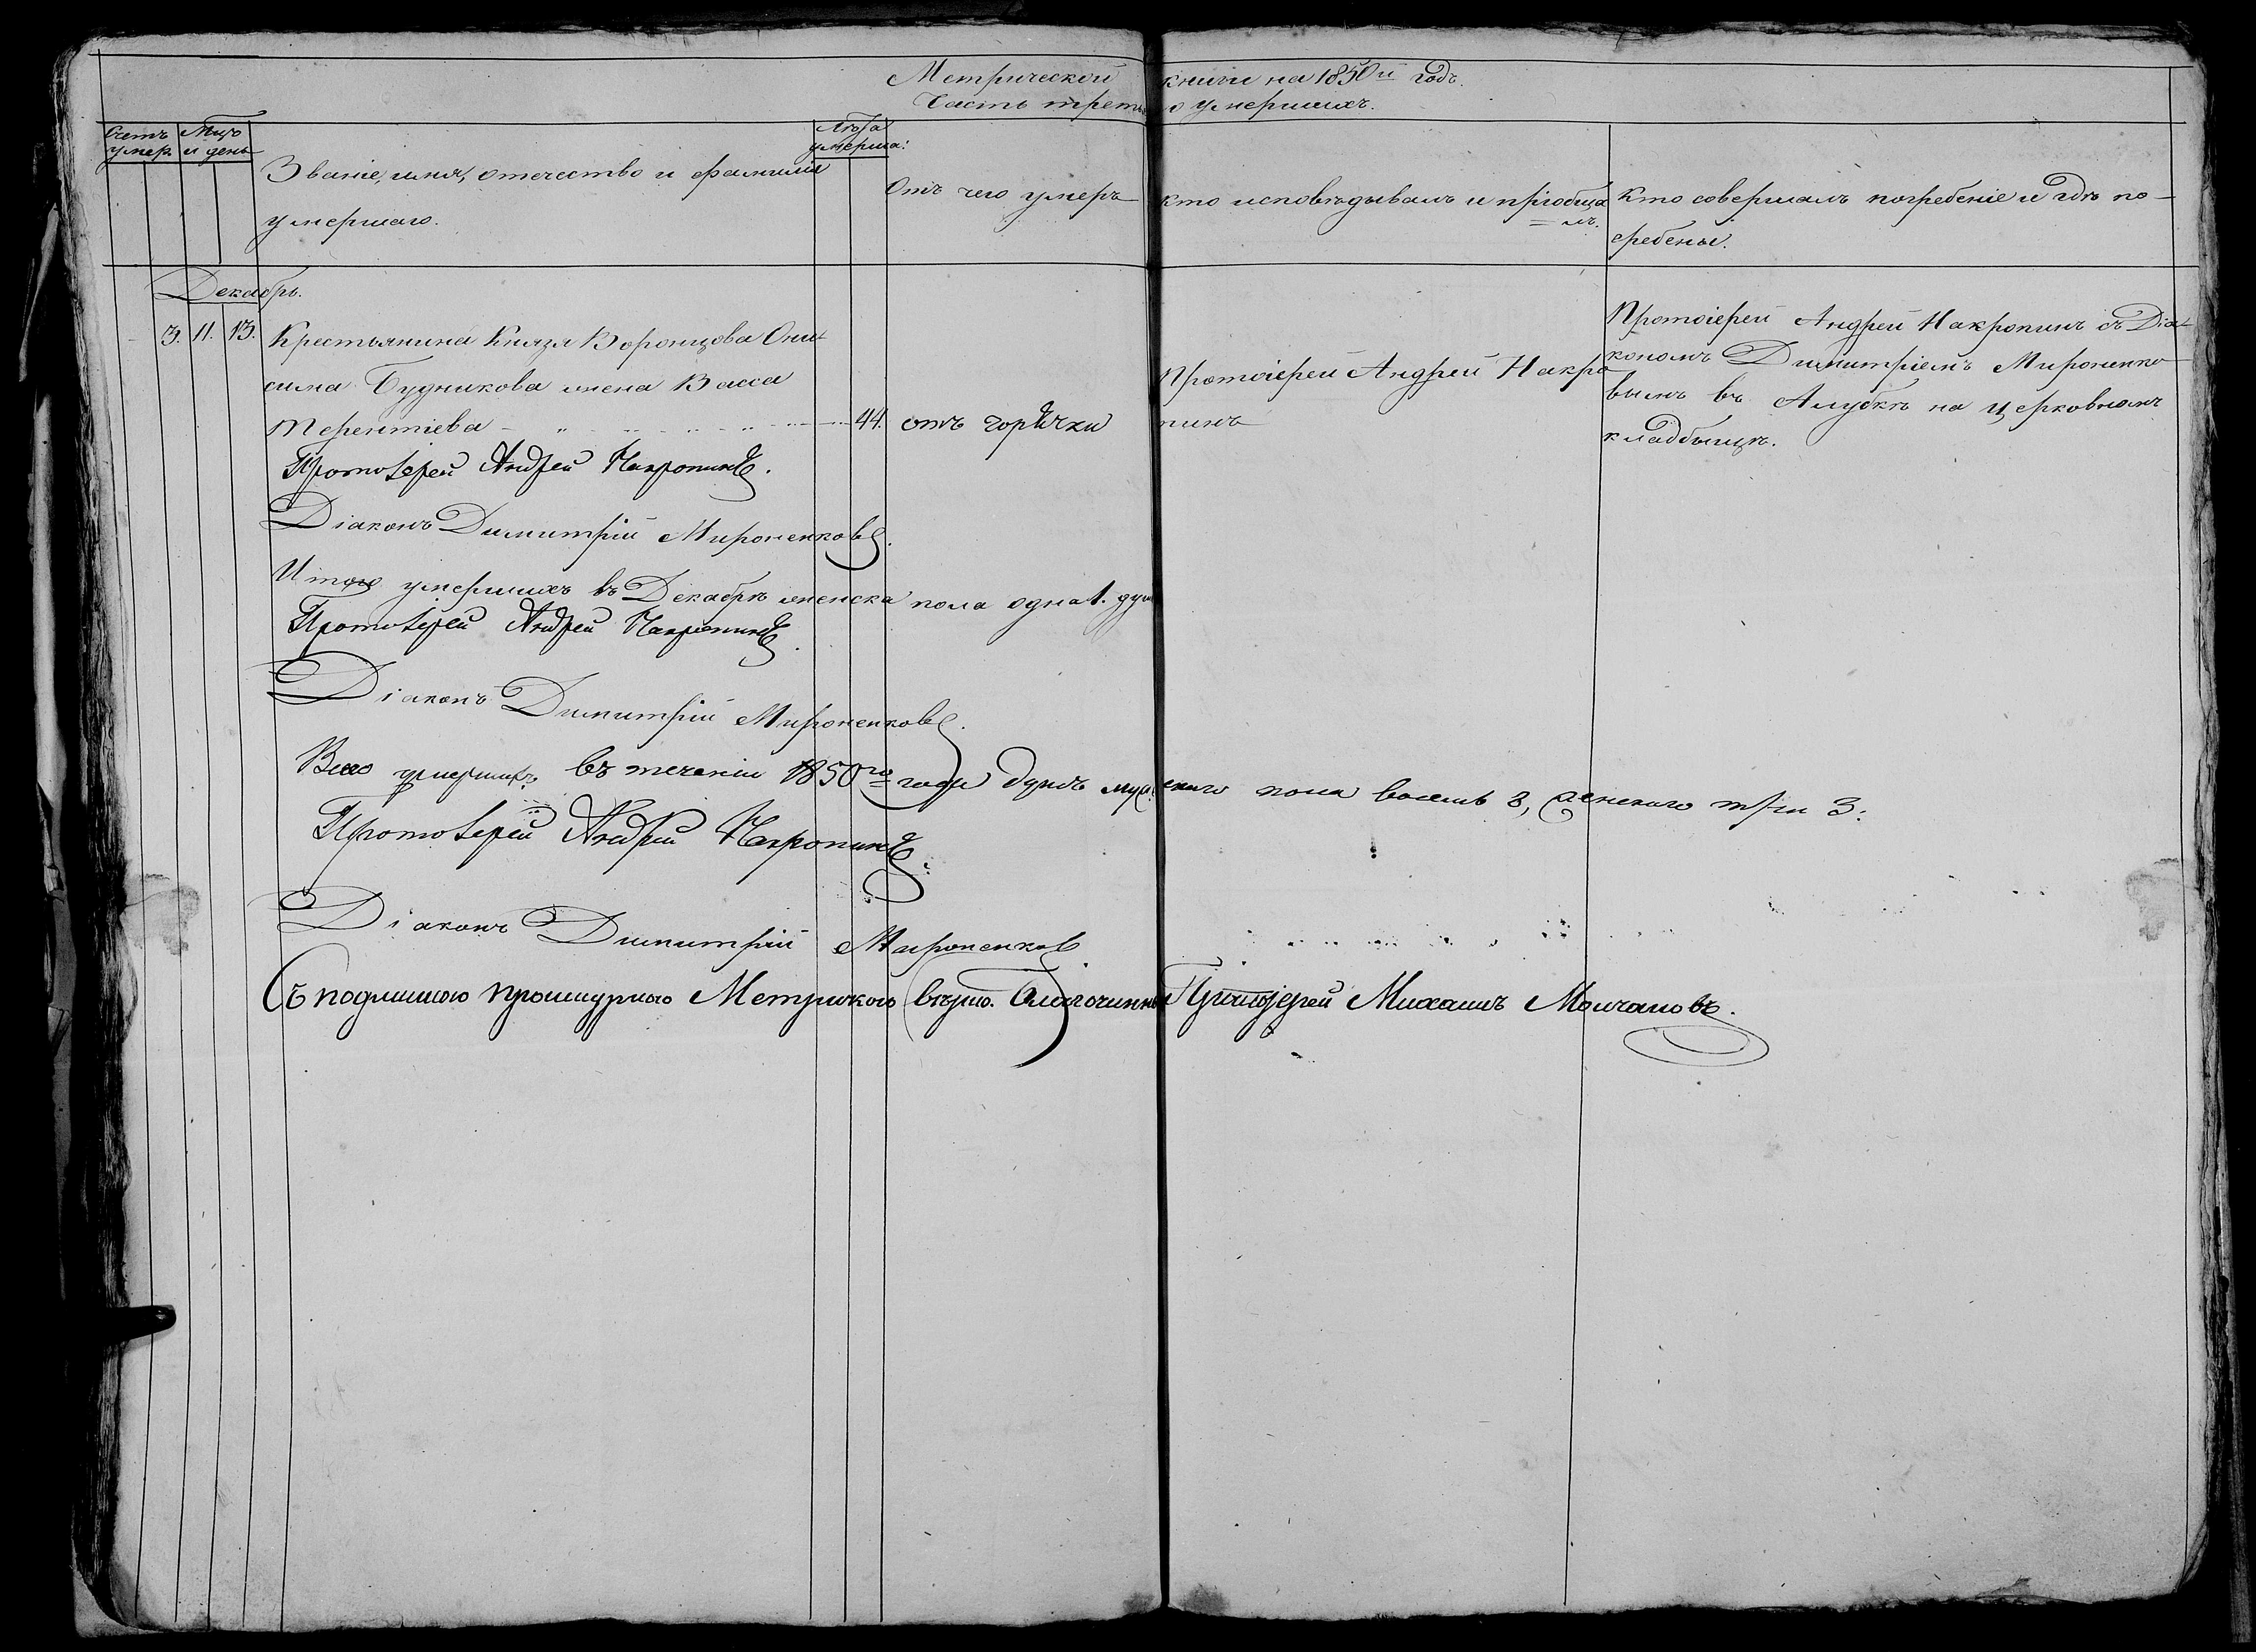 Метрической книги на 1850й годъ.
Часть третья о умершихъ.
Счетъ умер.
Мцъ и день
Званіе, имя, отечество и фамилія
умершаго.
Лѣта
умерша:
Отъ чего умеръ
кто исповѣдывалъ и пріобща
=лъ.
Кто совершалъ погребеніе и гдѣ по-
гребены.
Декабрь.
3. 11. 13. Крестьянина Князя Воронцова Они-
сима Будникова жена Васса
Терентіева 44. отъ горѣчки
Протоіерей Андрей Накро
пинъ
Протоіерей Андрей Накропинъ съ Діа-
кономъ Димитріемъ Мироненко
вымъ въ Алубкѣ на церковномъ
кладбыщѣ.
Протоіерей Андрей Накропинъ.
Діаконъ Димитрій Мироненковъ.
Итого умершихъ въ Декабрѣ женска пола одна 1. душ
Протоіерей Андрей Накропинъ.
Діаконъ Димитрій Мироненковъ.
Всего умершихъ въ теченіи 1850го года душъ мужескаго пола восемь 8, женскаго три 3:
Протоіерей Андрей Накропинъ.
Діаконъ Димитрій Мироненковъ
Съ подлинною прошнурною Метрикою вѣрно. Благочинный Протоіерей Михаилъ Молчановъ.